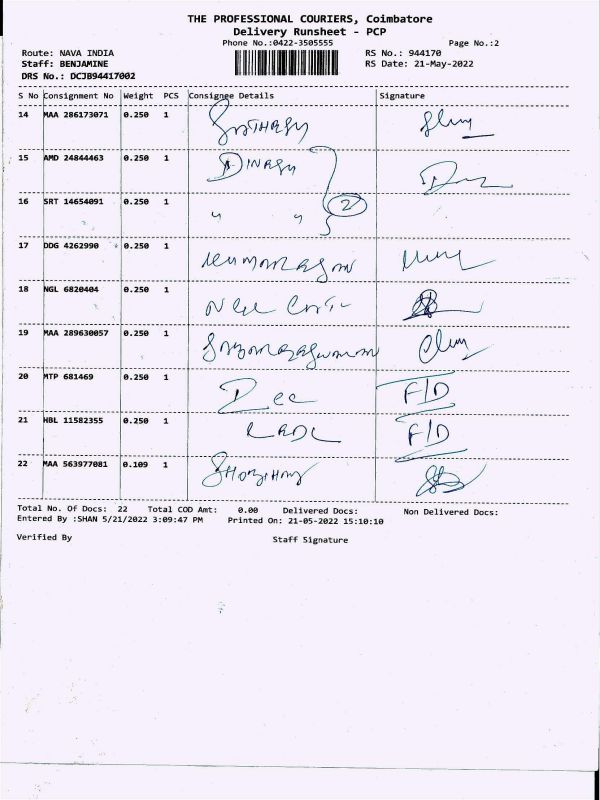 THE PROFESSIONAL COURIERS, Coimbatore
Delivery Runsheet - PCP
Phone No.:0422-3505555 Page No.:2
Route: NAVA INDIA RS No.: 944170
Staff: BENJAMINE RS Date: 21-May-2022
DRS No.: DCJB94417002
S No Consignment No Weight PCS Consignee Details Signature
14 MAA 286173071 0.250 1
15 AMD 24844463 0.250 1 DINESH
16 SRT 14654091 0.250 1 " " 2
17 DDG 4262990 0.250 1
18 NGL 6820404 0.250 1
19 MAA 289630057 0.250 1
20 MTP 681469 0.250 1 F/D
21 HBL 11582355 0.250 1 F/D
22 MAA 563977081 0.109 1
Total No. Of Docs: 22 Total COD Amt: 0.00 Delivered Docs: Non Delivered Docs:
Entered By :SHAN 5/21/2022 3:09:47 PM Printed On: 21-05-2022 15:10:10
Verified By Staff Signature